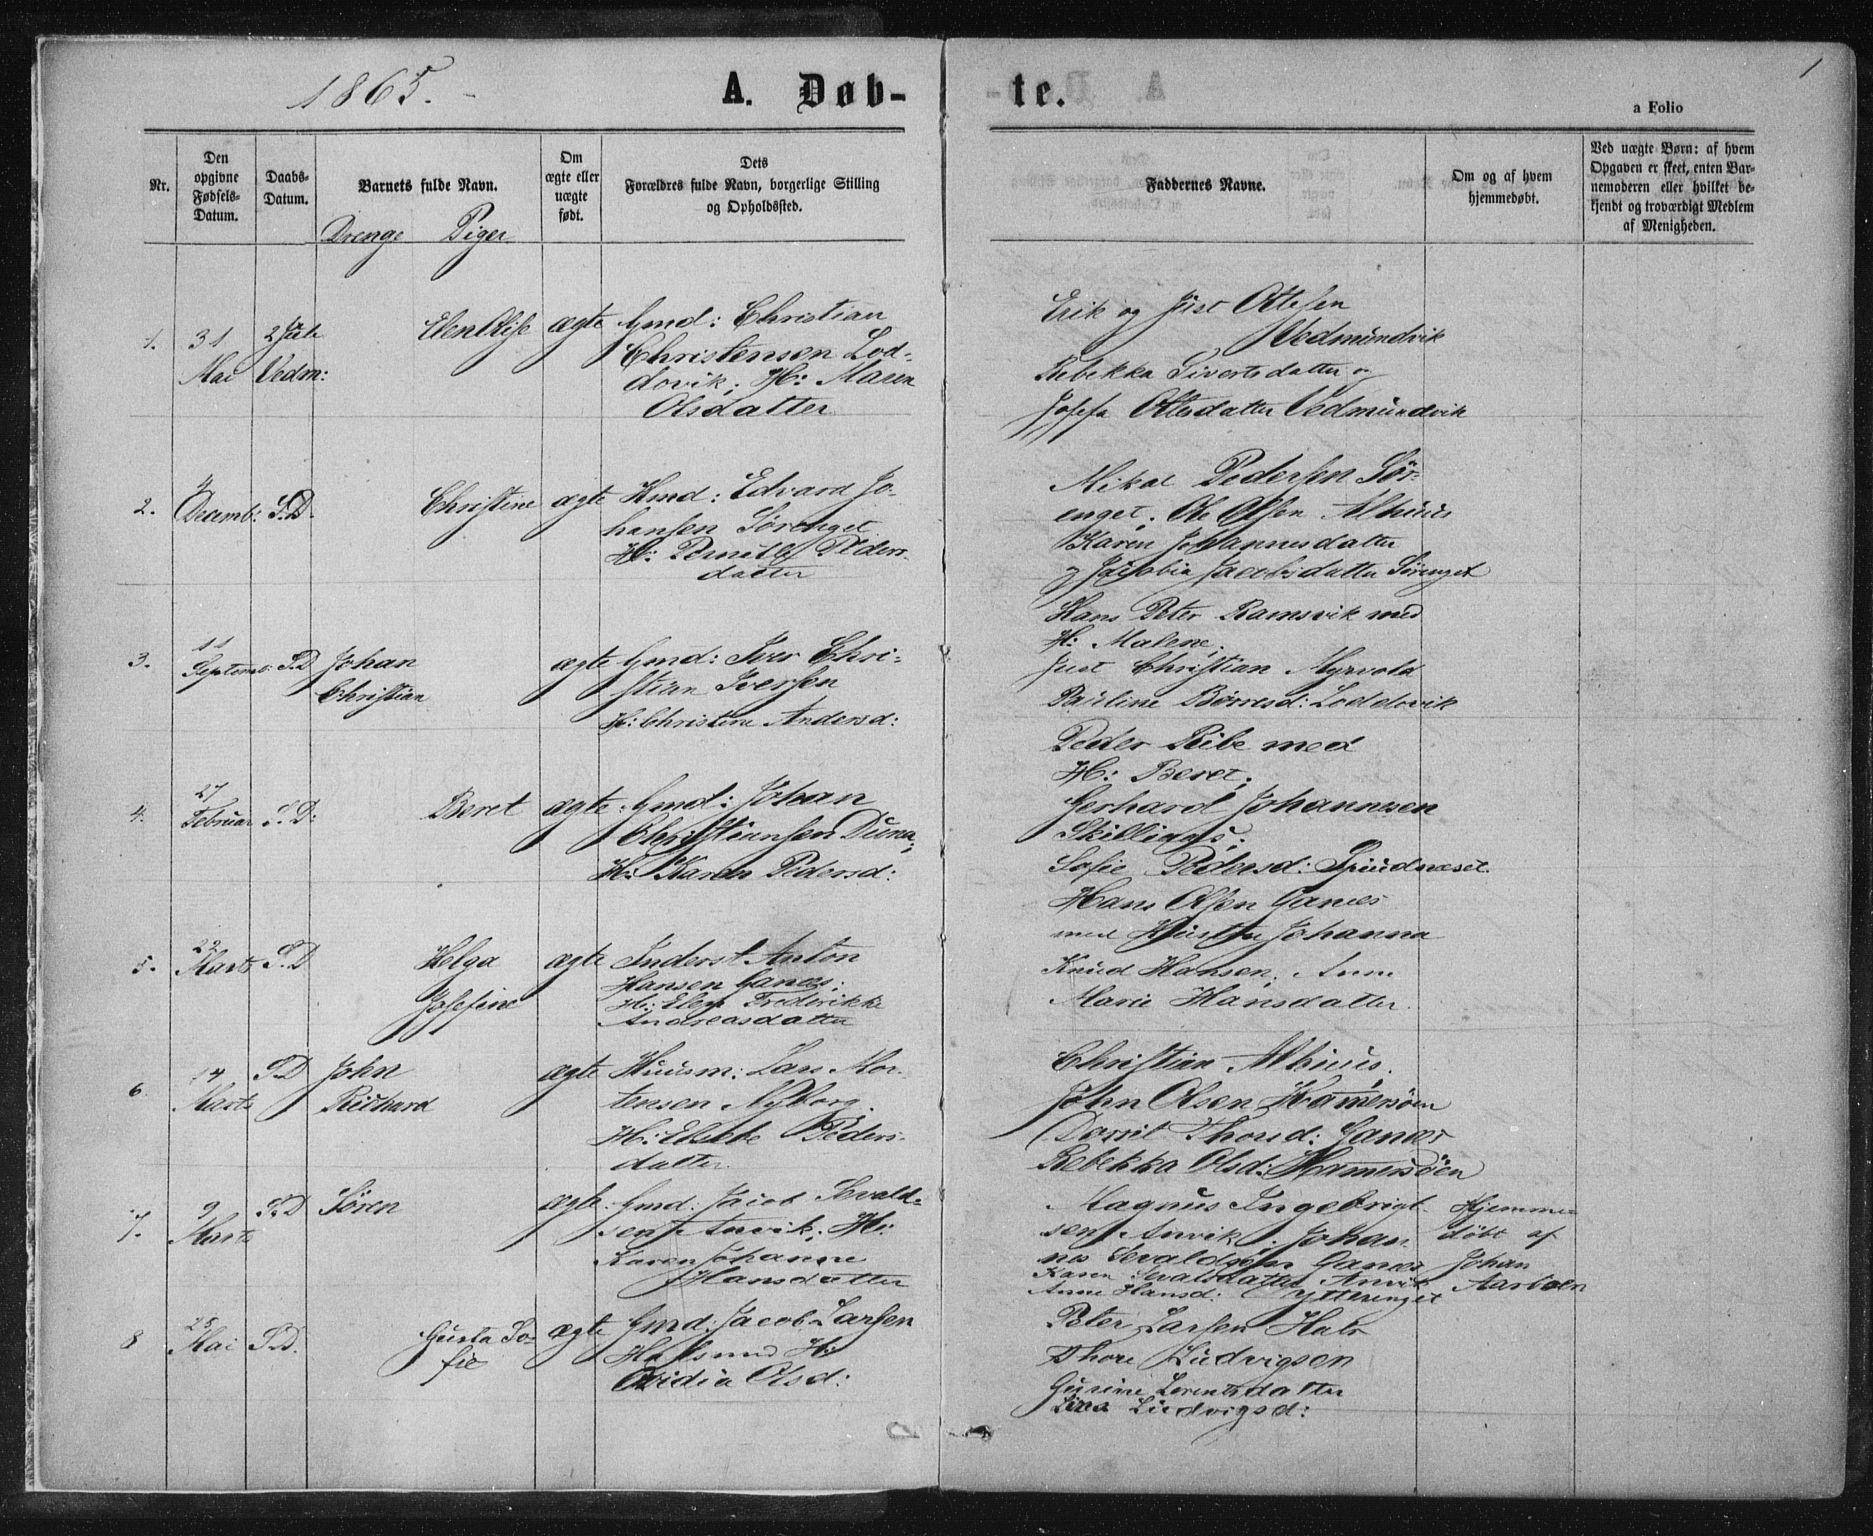 1865.
A. Døb-
te.
1
a Folio
Nr.
Den
opgivne
Fødsels-
Datum.
Daabs-
Datum.
Barnets fulde Navn.
Drenge Piger
Om
ægte eller
uægte
født.
Dets
Forældres fulde Navn, borgerlige Stilling
og Opholdssted.
Faddernes Navne.
Om og af hvem
hjemmedøbt.
Ved uægte Børn: af hvem
Opgaven er skeet, enten Bar-
nemoderen eller hvilket be-
kjendt og troværdigt Medlem
af Menigheden.
1.
31
Mai
2 Juli
Vedm:
Elen Elise
ægte
Gmd: Christian
Christensen Lod-
dovik; H: Maren
Olsdatter
Erik og Just Olsen
Vedmundvik
Rebekka Sivertsdatter og
Josefa Olsdatter Vedmundvik
2.
4
Decemb:
S.D.
Christine
ægte
Hmd: Edvard Jo-
hansen Sørenget
H: Pernille Peders-
datter
Mikal Pedersen Sør-
enget; Ole Olsen Alhuus
Karen Johannesdatter
og Jacobia Jacobsdatter Sørenget
3.
11
Septemb:
S.D
Johan
Christian
ægte
Gmd: Iver Chri-
stian Iversen
H: Christine Andersd:
Hans Peter Ramsvik med
H: Malene;
Just Christian Myrvold
Pauline Børresd: Loddovik
4.
27
Februar
S.D:
Beret
ægte
Gmd: Johan
Christiansen Duna;
H: Karen Pedersd:
Peder Ribe med
H: Beret;
Gerhard Johannesen
Skillings;
Sofie Pedersd: Spildneset.
5.
22
Marts
S.D
Helga
Josefine
ægte
Inderst Anton
Hansen Ganæs;
H: Elen Frederikke
Andreasdatter
Hans Olsen Ganæs
med Hustru Johanna
Knud Hansen; Anne
Marie Hansdatter.
6.
14
Marts
S.D
John
Richard
ægte
Huusm: Lars Mor-
tensen Nyborg.
H: Peders-
datter.
Christian Alhuus.
John Olsen Hamersøen
Dorrit Thorsd: Ganæs
Rebekka Olsd: Hamersøen
7.
9
Marts
S.D
Søren
ægte
Gmd: Jacob Sevald-
sen Anvik; H:
Karen Johanne
Hansdatter
Magnus Ingebrigt-
sen Anvik; Johan-
nes Sevaldsen Ganæs
Karen Sevaldsdatter Anvik
Anne Hansd: Ytterenget
Hjemme
døbt af
Johan
Aarbøen
8
25
Mai
S.D.
Gusta So-
fie
ægte
Gmd: Jacob Larsen
Halsund H:
Ovidia Olsd:
Peter Larsen Hals
Thore Ludvigsen
Gurine Lorentsdatter
Lina Ludvigsd: